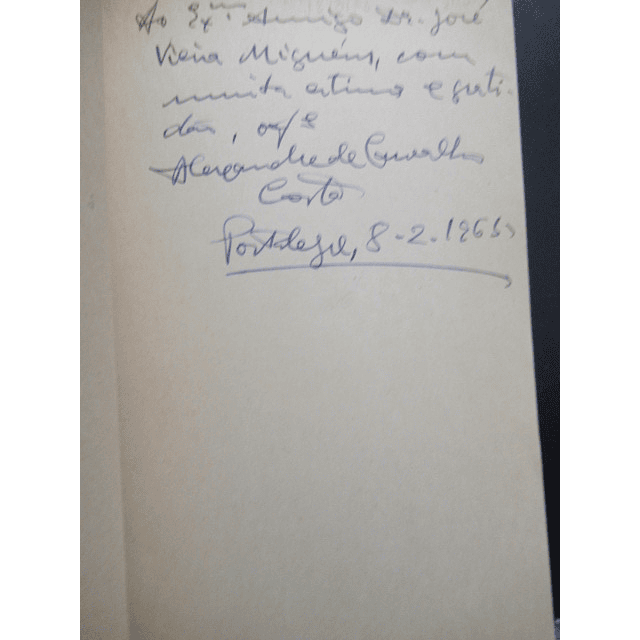 Ao Ex.mo Amigo Dr. José
Vieira Miguéns, com
muita estima e grati-
dão, of.e
Alexandre de Carvalho
Costa
Portalegre, 8-2-1965